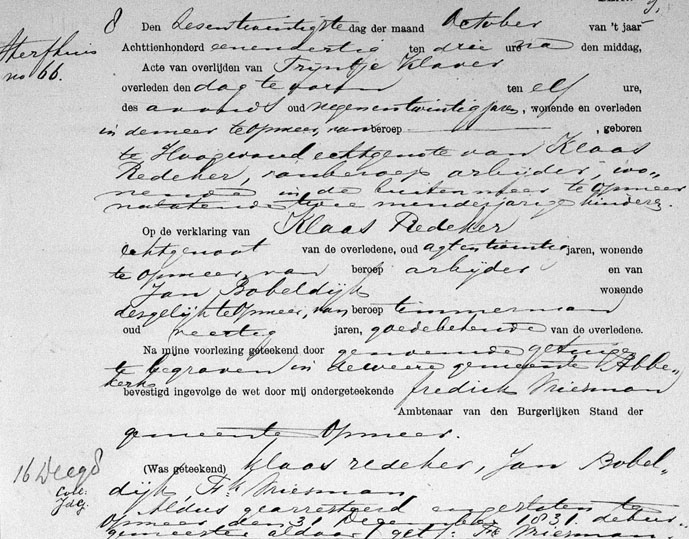 8 Den Sesentwintigste dag der maand October van 't jaar
Sterfhuis
no 66.
Achttienhonderd eenendertig ten drie ure na den middag,
Acte van overlijden van Trijntje Klaver
overleden den dag te voren ten elf ure,
des avonds oud negenentwintig jaren, wonende en overleden
in de meer te Opmeer, van beroep , geboren
te Hoogwoud echtgenote van Klaas
Redeker, van beroep arbijder, wo-
nende in de buitenmeer te Opmeer
nalatende twee minderjarige kinders.
Op de verklaring van Klaas Redeker
echtgenoot van de overledene, oud agtentwintig jaren, wonende
te Opmeer, van beroep arbijder en van
Jan Bobeldijk wonende
desgelijk te Opmeer, van beroep timmerman
oud veertig jaren, goede bekende van de overledene.
Na mijne voorlezing geteekend door genoemde getuigen
te begraven in de gemeente Abbe-
kerk
bevestigd ingevolge de wet door mij ondergeteekende fredrik Miesman
Ambtenaar van den Burgerlijken Stand der
gemeente Opmeer.
(Was geteekend) Klaas redeker, Jan Bobel-
16 Deeg 8
dijk, Fk Miesman
Aldus gearresteerd en gesloten te
Opmeer den 31 December 1831. de bur-
gemeester aldaar (get): Fk Miesman.